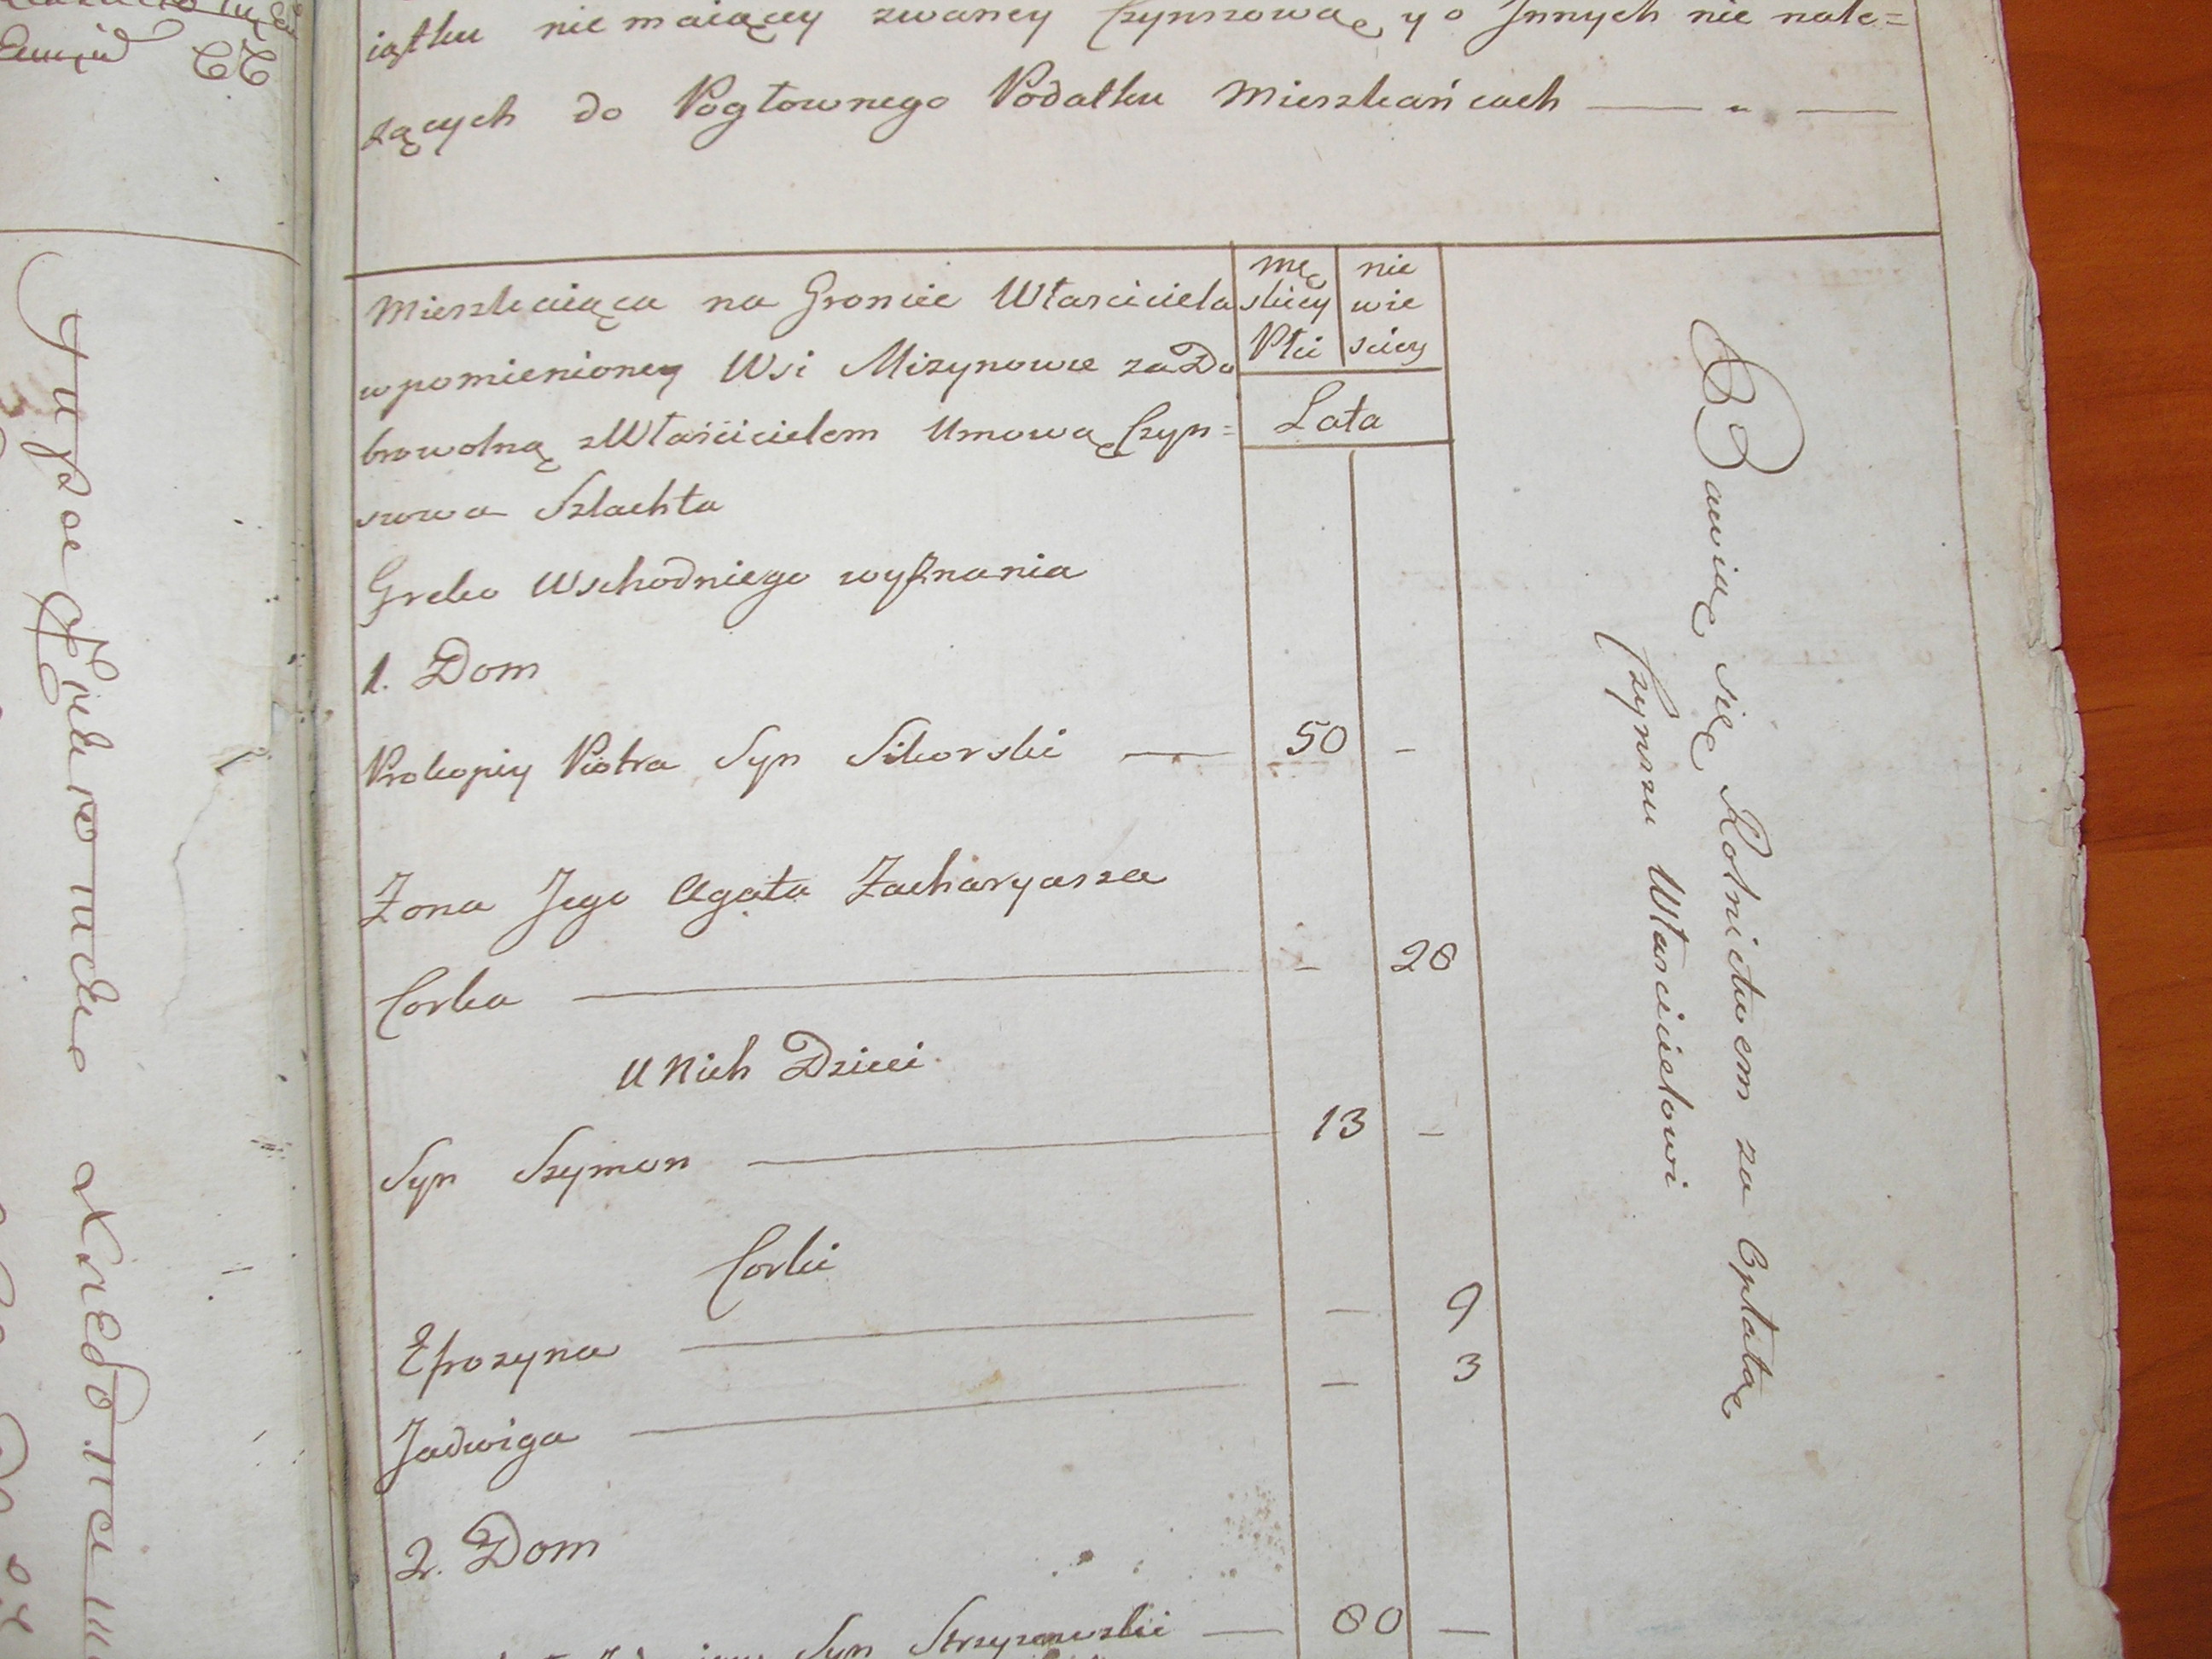 iątku nie maiącey zwaney Czynszową y o Innych nie nale=
żących do Pogłownego Podatku Mieszkańcach
Mieszkaiąca na Groncie Własciciela
wpomienioney Wsi Mizynowce za Do
browolną z Właścicielem Umową Czyn=
szowa Szlachta
Greko Wschodniego wyznania
mę
skiey
Płci
nie
wie
sciey
Lata
1. Dom
Prokopiy Piotra Syn Sikorski — 50 —
Żona Jego Agata Zacharyasza
Corka — — 28
U Nich Dzieci
Syn Szymon — 13 —
Corki
Efrozyna — — 9
Jadwiga — — 3
2. Dom
Syn Strzyzewski — 80 —
Bawią się Rolnictwem za Opłatą
Czynszu Włascicielowi